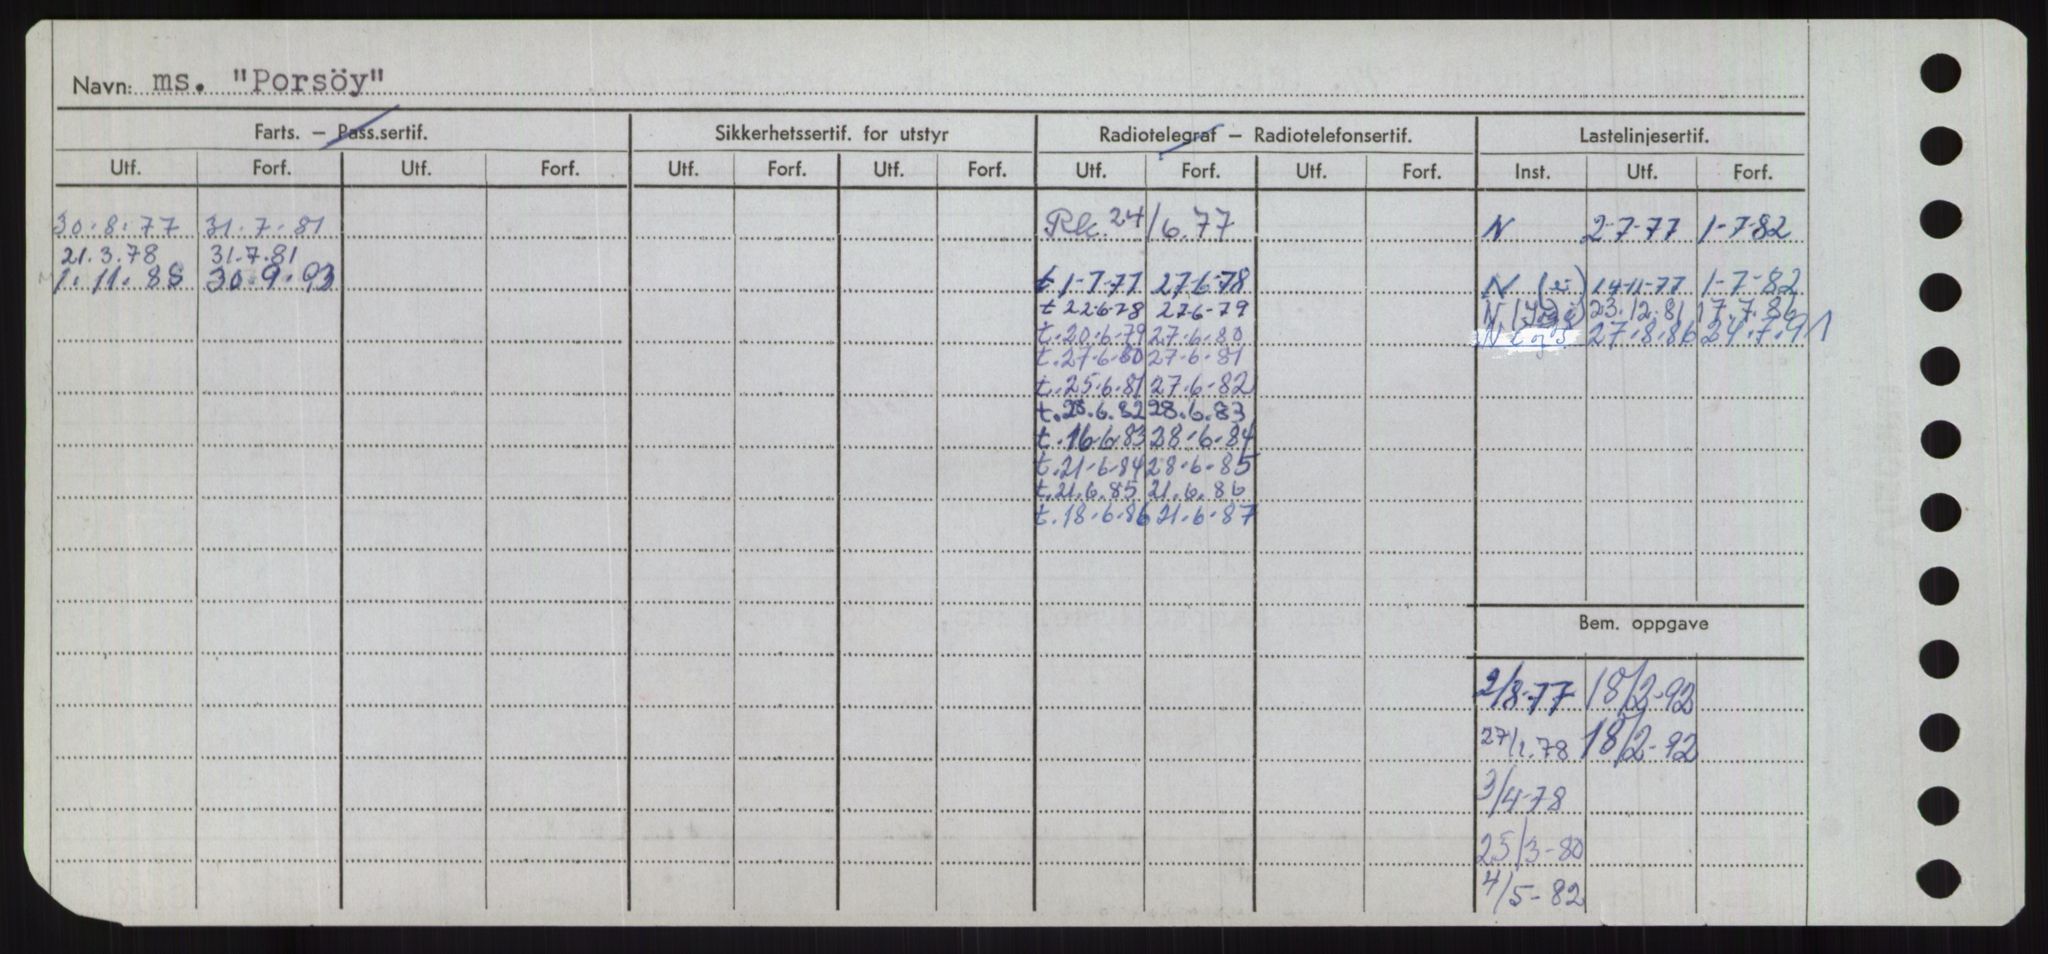 Navn: ms. "Porsöy"
Farts. – Pass.sertif. Sikkerhetssertif. for utstyr Radiotelegraf – Radiotelefonsertif. Lastelinjesertif.
Utf. Forf. Utf. Forf. Utf. Forf. Utf. Forf. Utf. Forf. Utf. Forf. Inst. Utf. Forf.
30.8.77 31.7.81 Rk. 24/6.77 N 2-7-77 1-7-82
21.3.78 31.7.81
1.11.88 30.9.93 t 1-7-77 27-6-78 N 14-11-77 1-7-82
t 22-6-78 27-6-79 N 23.12.81 17.7.86
t. 20-6-79 27-6-80 N 27.8.86 24.7.91
t. 27-6-80 27-6-81
t. 25-6-81 27-6-82
t. 28.6.82 28.6.83
t. 16-6-83 28-6-84
t. 21-6-84 28-6-85
t. 21.6.85 21.6.86
t. 18-6-86 21-6-87
Bem. oppgave
2/8-77 18/2-92
27/1.78 18/2-92
3/4-78
25/3-80
4/5-82